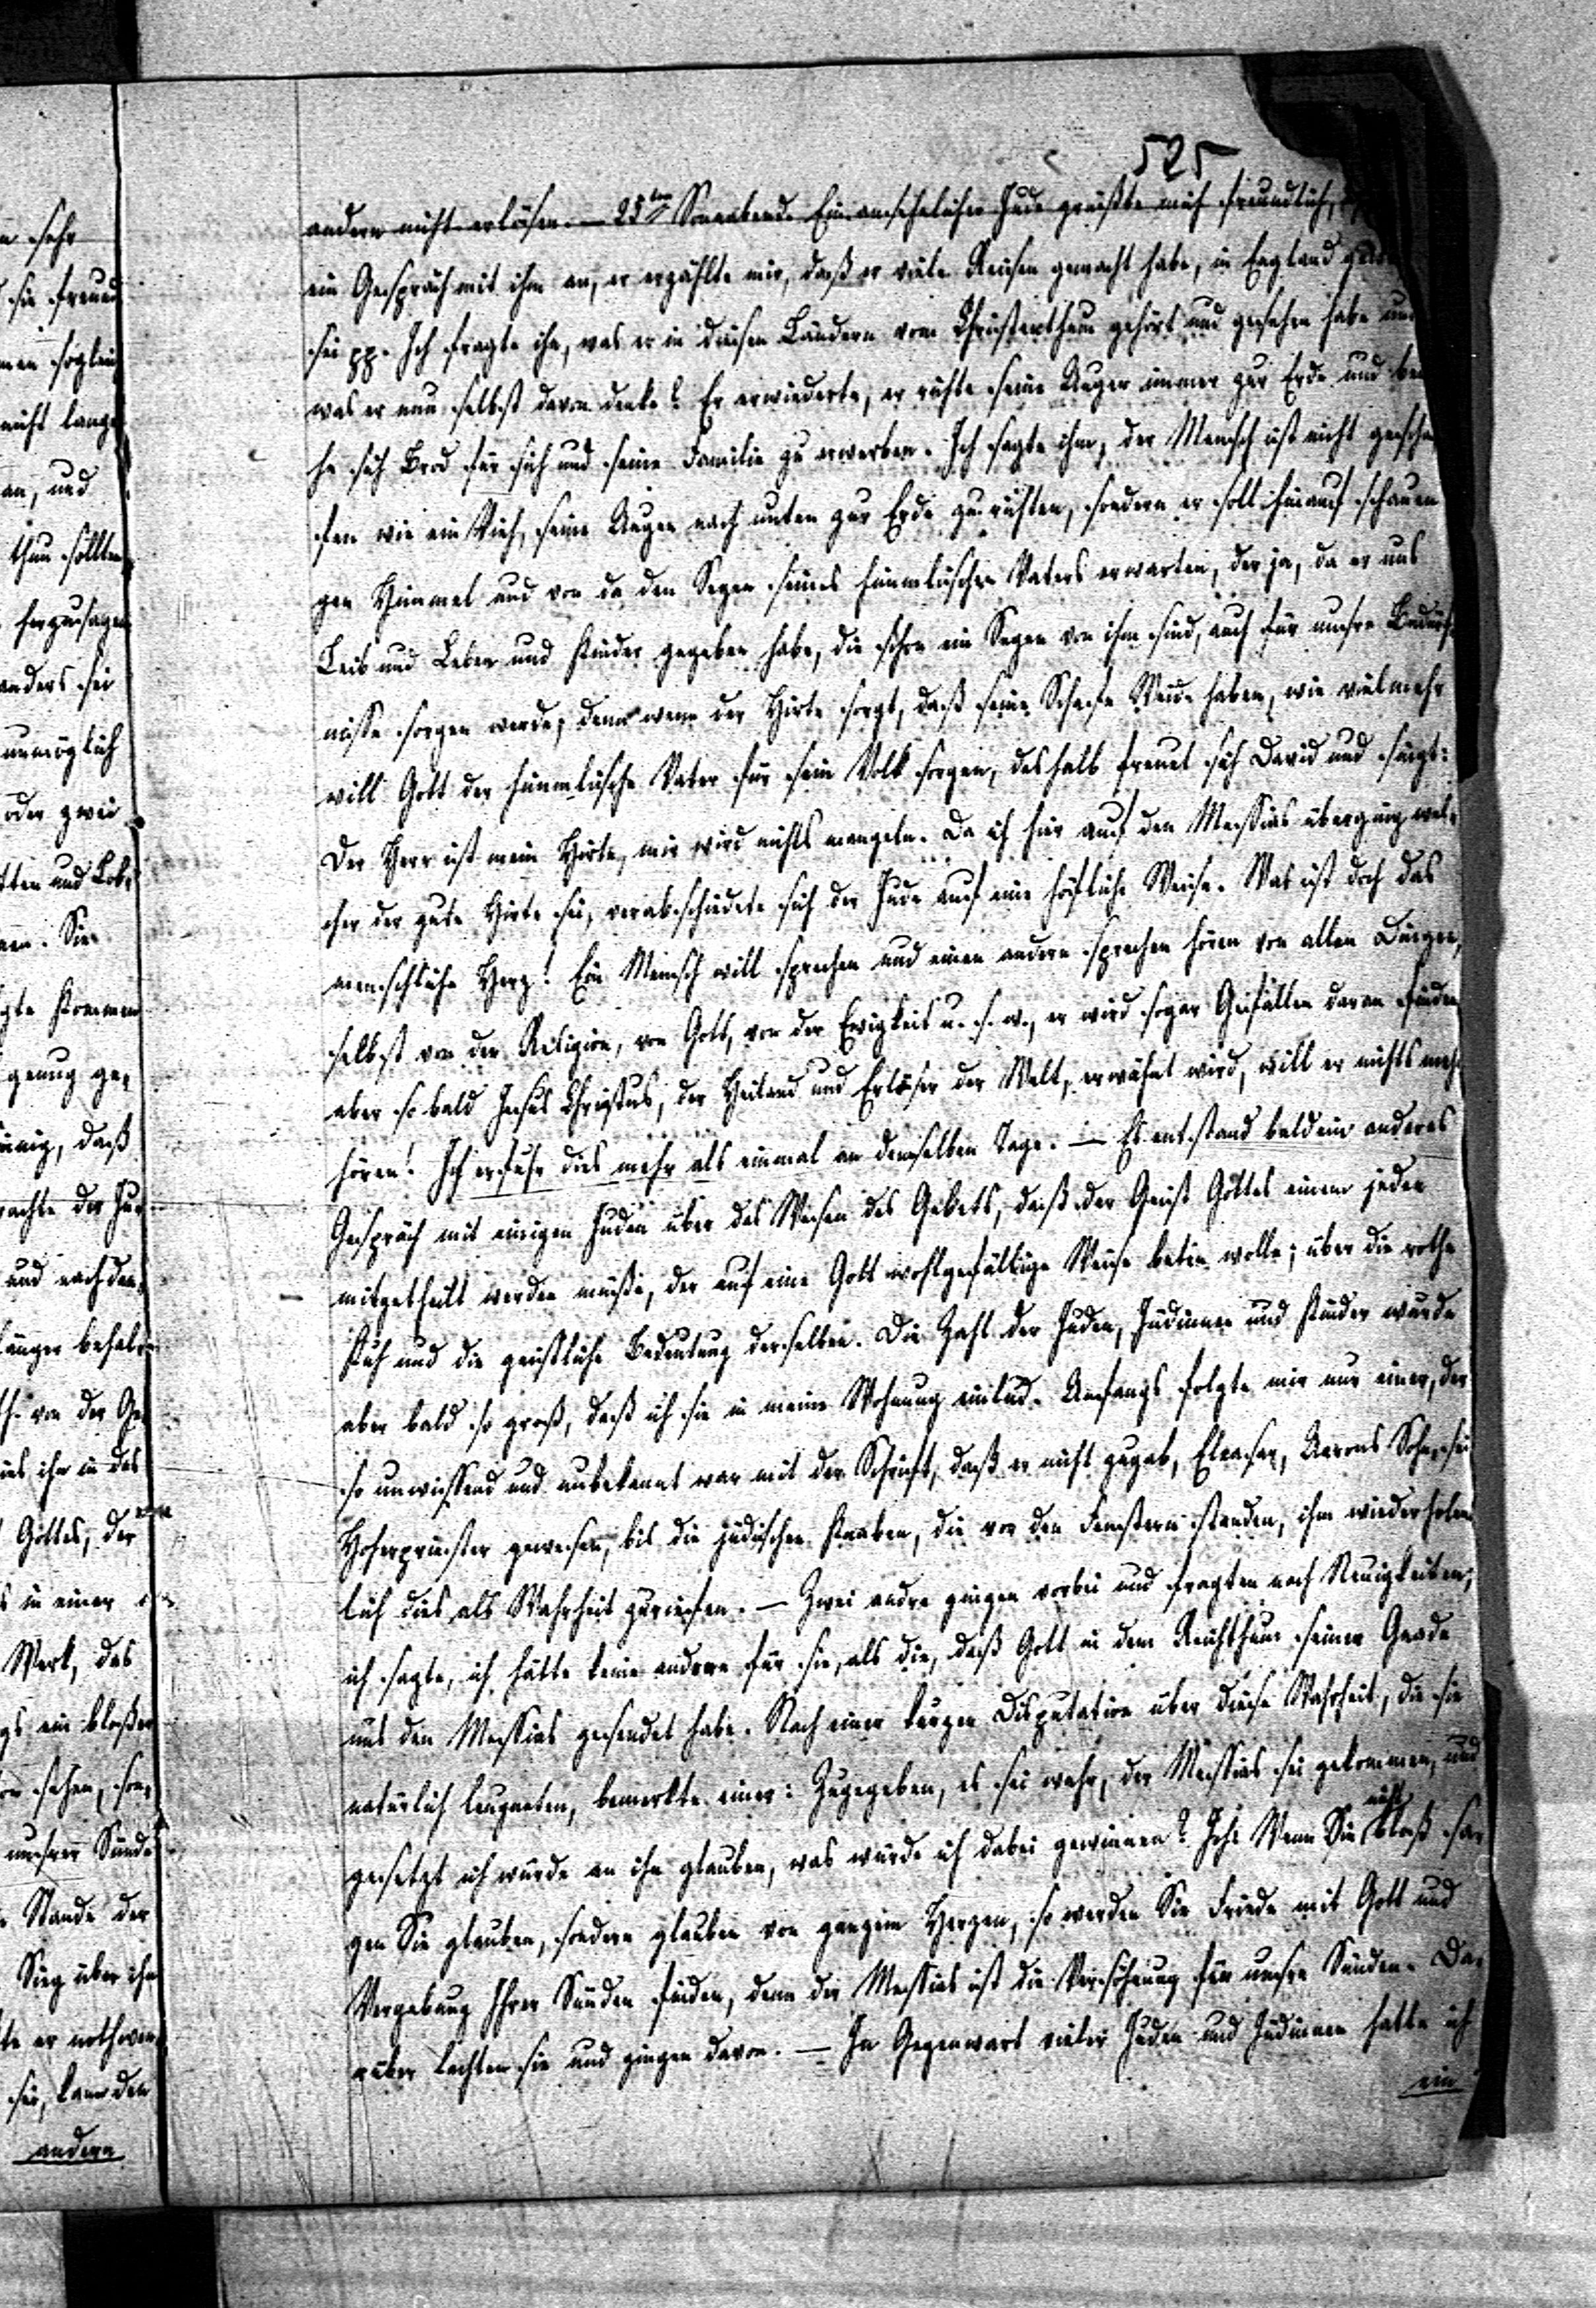 525
andern nicht erlösen. — 25ten Sonnabend. Ein ansehnlicher Jude grüßte mich freundlich,
ein Gespräch mit ihm an, er erzählte mir, daß er viele Reisen gemacht habe, in England
sei pp. Ich fragte ihn, was er in diesen Ländern vom Christenthum gehört und gesehen habe und
was er nun selbst davon denke? Er erwiederte, er richte seine Augen immer zur Erde und
he sich Brod für sich und seine Familie zu erwerben. Ich sagte ihm, der Mensch ist nicht geschaf
fen wie ein Vieh, seine Augen nach unten zur Erde zu richten, sondern er soll hinauf schauen
gen Himmel und von da den Segen seines himmlischen Vaters erwarten, der ja, da er uns
Leib und Leben und Kinder gegeben habe, die schon ein Segen von ihm sind, auch für unsre Bedürf
nisse sorgen werde; denn wenn der Hirte sorgt, daß seine Schafe Weide haben, wie vielmehr
will Gott der himmlische Vater für sein Volk sorgen, deshalb freuet sich David und singt:
Der Herr ist mein Hirte, mir wird nichts mangeln. Da ich hier auf den Messias überging wel-
cher der gute Hirte sei, verabschiedete sich der Jude auf eine höfliche Weise. Was ist doch das
menschliche Herz! Ein Mensch will sprechen und einen andern sprechen hören von allen Dingen,
selbst von der Religion, von Gott, von der Ewigkeit u. s. w., er wird sogar Gefallen daran finden
aber so bald Jesus Christus, der Heiland und Erlöser der Welt, erwähnt wird, will er nichts mehr
hören! Ich erfuhr dies mehr als einmal an demselben Tage. — Es entstand bald ein anderes
Gespräch mit einigen Juden über das Wesen des Gebets, daß der Geist Gottes einem jeden
mitgetheilt werden müsse, der auf eine Gott wohlgefällige Weise beten wolle; über die rothe
Kuh und die geistliche Bedeutung derselben. Die Zahl der Juden, Jüdinnen und Kinder wurde
aber bald so groß, daß ich sie in meine Wohnung einlud. Anfangs folgte mir nur einer, der
so unwissend und unbekannt war mit der Schrift, daß er nicht zugab, Eleasar, Aarons Sohn, sei
Hoherpriester gewesen, bis die jüdischen Knaben, die vor den Fenstern standen, ihm wiederholent
lich dies als Wahrheit zuriefen. — Zwei andre gingen vorbei und fragten nach Neuigkeiten;
ich sagte, ich hätte keine andere für sie, als die, daß Gott in dem Reichthum seiner Gnade
uns den Messias gesendet habe. Nach einer kurzen Disputation über diese Wahrheit, die sie
natürlich leugneten, bemerkte einer: Zugegeben, es sei wahr, der Messias sei gekommen, und
gesetzt ich würde an ihn glauben, was würde ich dabei gewinnen? Ich: Wenn Sie nicht bloß sa-
gen Sie glauben, sondern glauben von ganzem Herzen, so werden Sie Friede mit Gott und
Vergebung Ihrer Sünden finden, denn der Messias ist die Versöhnung für unsre Sünden. Da-
rüber lachten sie und gingen davon. — In Gegenwart vieler Juden und Jüdinnen hatte ich
ein